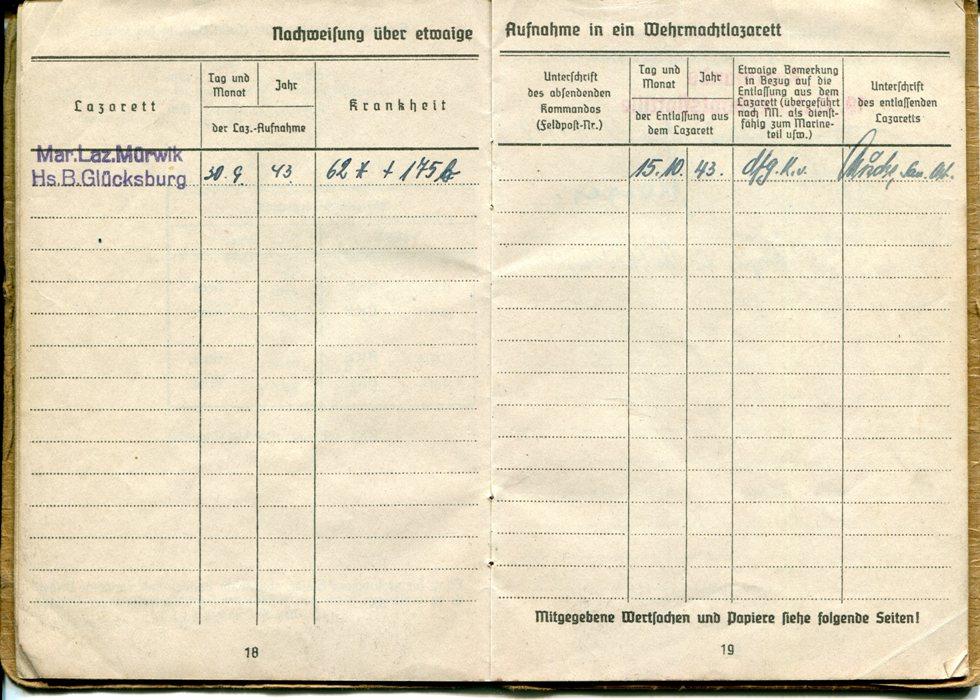 Nachweisung über etwaige
Lazarett
Tag und
Monat
Jahr
der Laz.-Aufnahme
Krankheit
Mar.Laz.Mürwik
Hs.B.Glücksburg
30. 9. 43 62 + 175b
18
Aufnahme in ein Wehrmachtlazarett
Unterschrift
des absendenden
Kommandos
(Feldpost-Nr.)
Tag und
Monat
Jahr
der Entlassung aus
dem Lazarett
Etwaige Bemerkung
in Bezug auf die
Entlassung aus dem
Lazarett (übergeführt
nach NN. als dienst-
fähig zum Marine-
teil usw.)
Unterschrift
des entlassenden
Lazaretts
15. 10. 43. dfg. K.v.
Mitgegebene Wertsachen und Papiere siehe folgende Seiten!
19